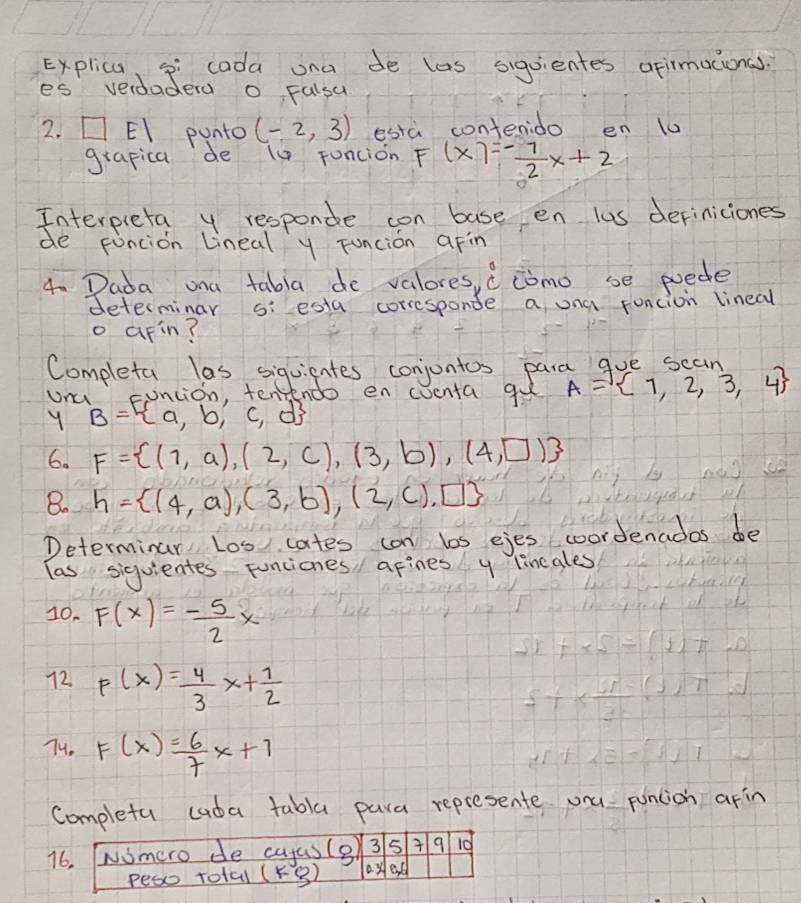 Explica si cada una de las siguientes afirmaciones.
es verdadera o falsa
2. □ El punto (-2, 3) está contenido en la
grafica de la función F(x)=-1/2x+2
Interpreta y responde con base en las definiciones
de función Lineal y función afín
4. Dada una tabla de valores, ¿cómo se puede
determinar si esta corresponde a una función lineal
o afín?
Completa las siguientes conjuntos para que sean
una función, teniendo en cuenta que A={1, 2, 3, 4}
y B={a, b, c, d}
6. F={(1, a),(2, c), (3, b), (4,□)}
8. h={(4, a),(3, b), (2, c),□}
Determinar Los cortes con los ejes coordenados de
las siguientes funciones afines y lineales
10. F(x)=-5/2x
12 F(x)=4/3x+1/2
14. F(x)=6/7x+1
Completa cada tabla para represente una función afín
16. Número de cajas (g) 3 5 7 9 10
peso total (Kg)